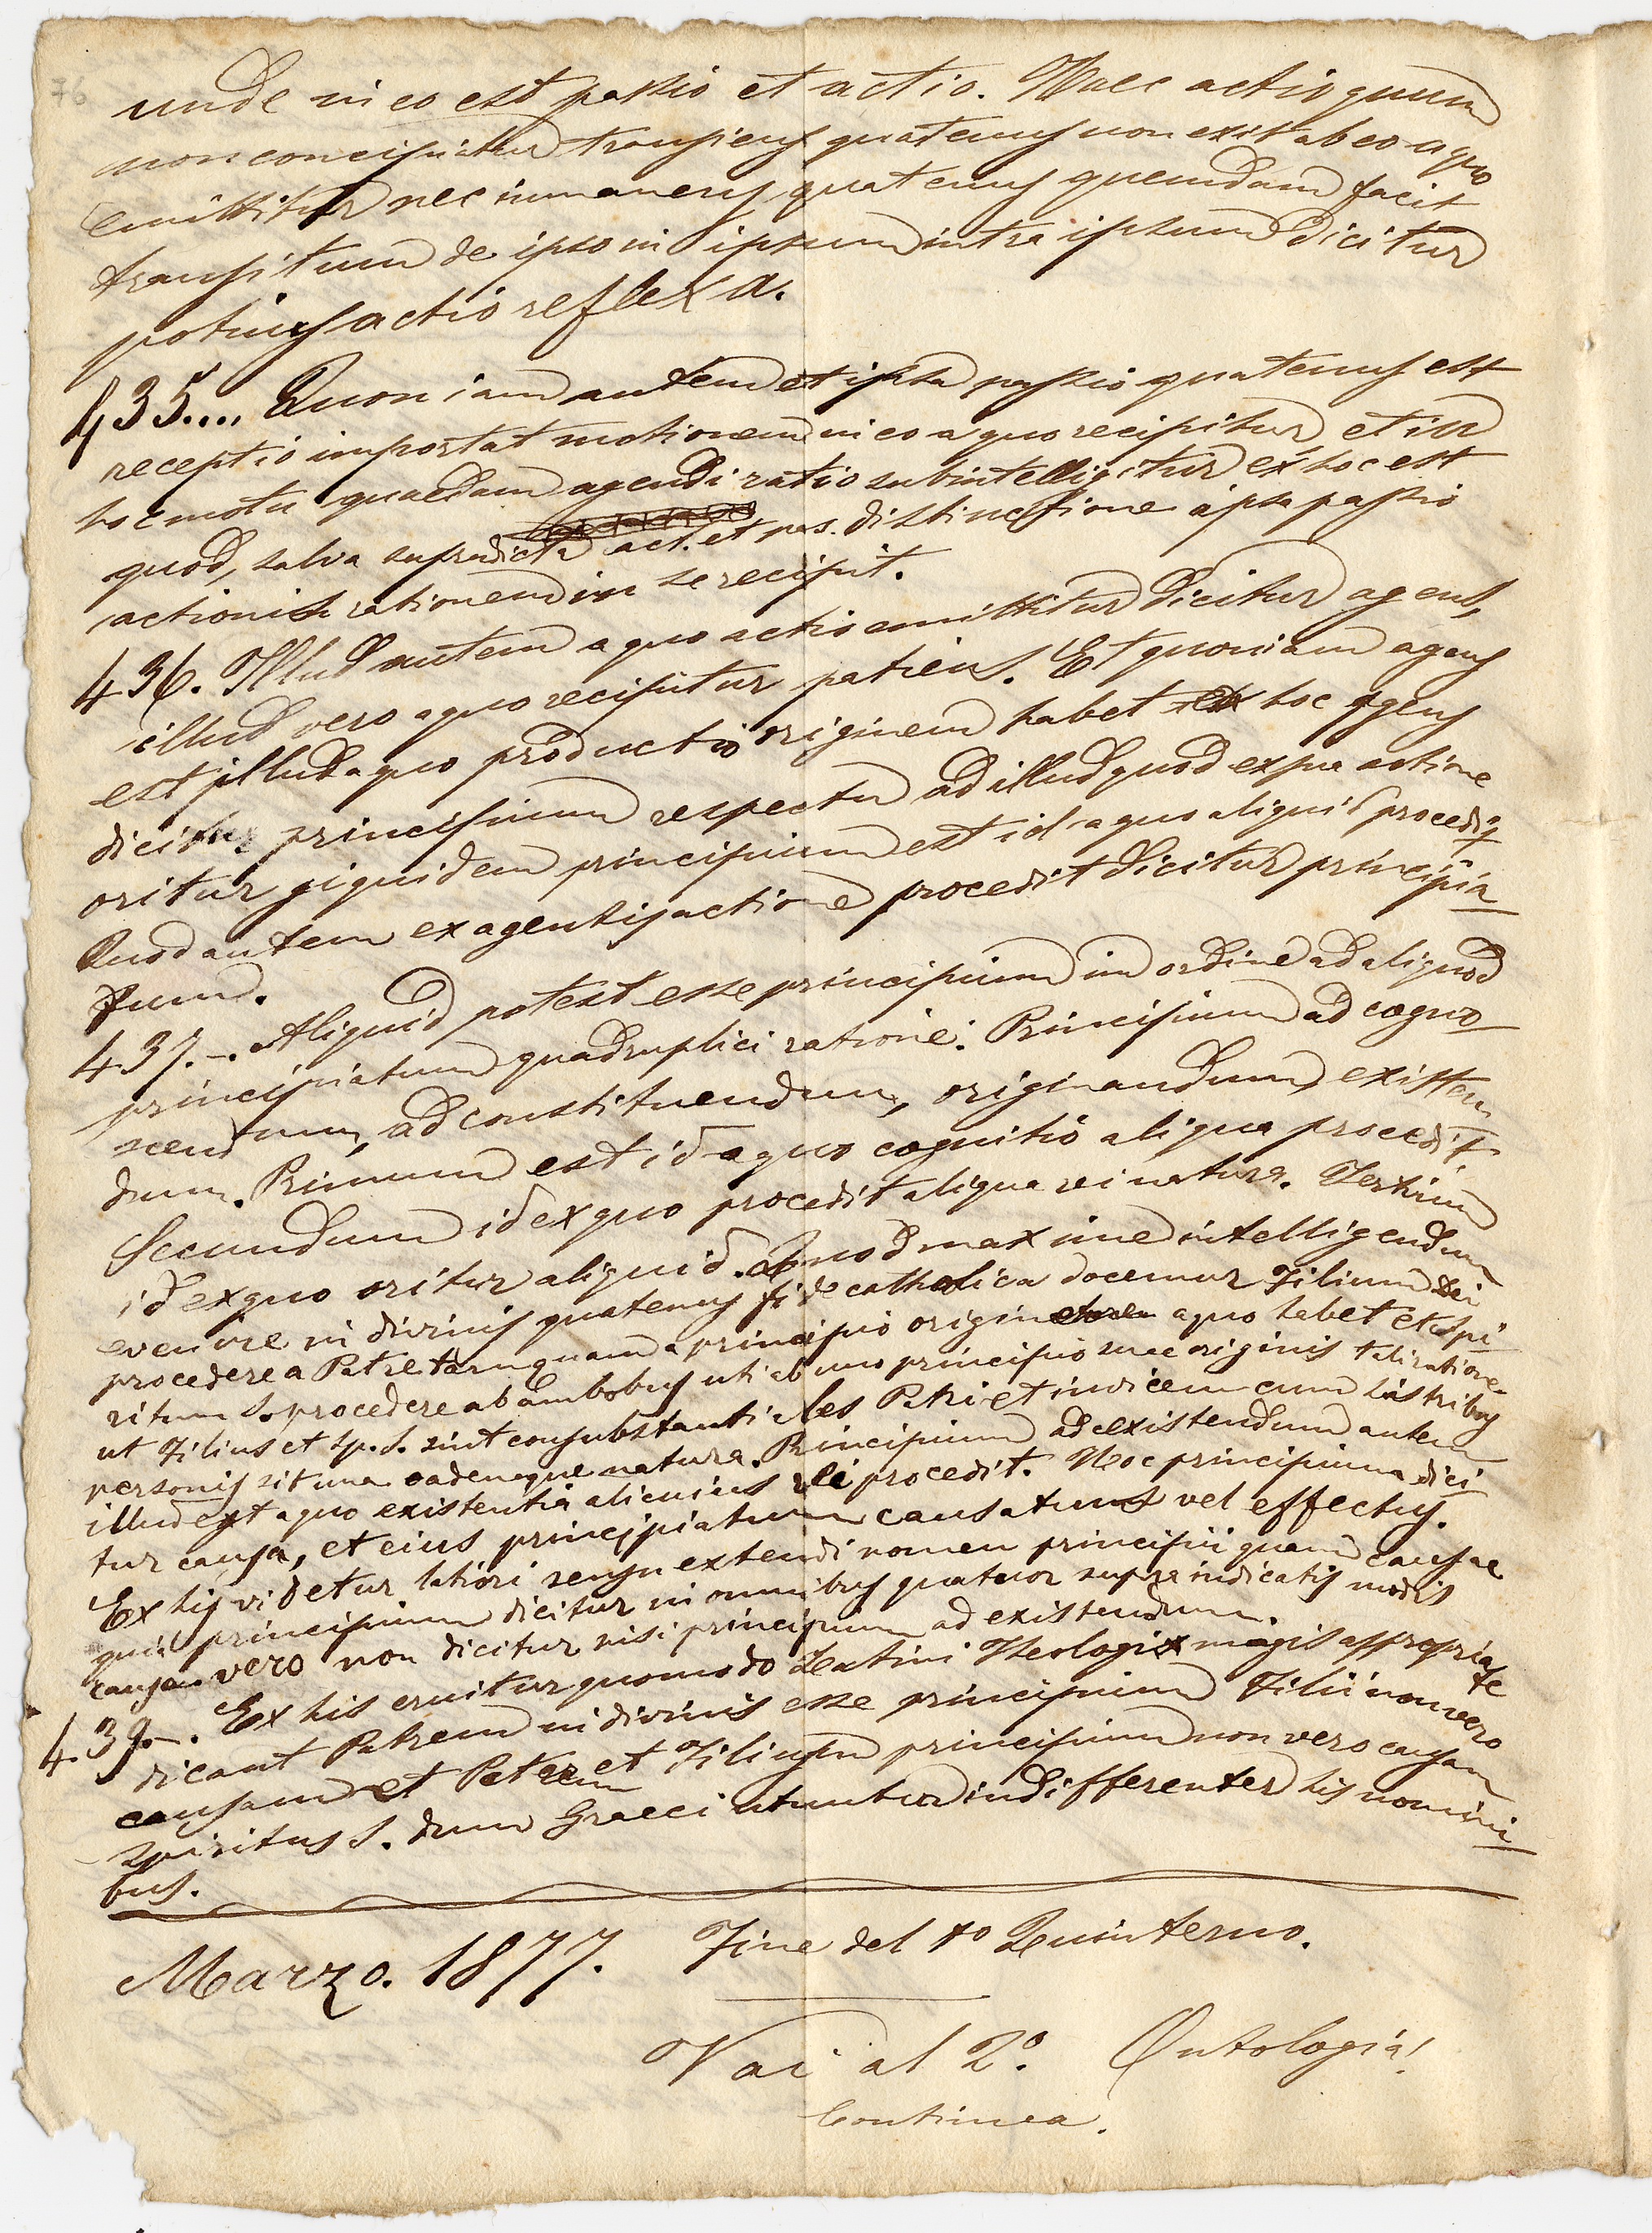 76
unde in eo est passio et actio. Haec actio quum
non concipiatur transiens quatenus non exit ab eo a quo
emittitur nec immanens quatenus quemdam facit
transitum de ipso in ipsum intra ipsum dicitur
potius actio reflexa.
435.... Quoniam autem et ipsa passio quatenus est
receptio importat motionem in eo a quo recipitur et in
hoc motu quaedam agendi ratio subintelligitur ex hoc est
quod, salva supradicta act. et pas. distinctione ipsa passio
actionis rationem in se recipit.
436. Illud autem a quo actio emittitur dicitur agens,
illud vero a quo recipitur patiens. Et quoniam agens
est illud a quo productio originem habet ex hoc agens
dicitur principium respectu ad illud quod ex sua actione
oritur siquidem principium est id a quo aliquid procedit
Quod autem ex agentis actione procedit dicitur principia
tum.
437.-. Aliquid potest esse principium in ordine ad aliquod
principiatum quadruplici ratione: Principium ad cogno
scendum, ad constituendum, originandum, existen
dum. Primum est id a quo cognitio aliqua procedit
Secundum id ex quo procedit aliqua rei natura. Tertium
id ex quo oritur aliquid. Quod maxime intelligendum
evenire in divinis quatenus fide catholica docemur Filium Dei
procedere a Patre tamquam a principio origin a quo habet et Spi
ritum S. procedere ab ambobus uti ab uno principio suae originis tali ratione
ut Filius et Sp. S. sint consubstantiales Patri et invicem cum his tribus
personis sit una eademque natura. Principium ad existendum autem
illud est a quo existentia alicuius rei procedit. Hoc principium dici
tur causa, et eius principiatum causatum vel effectus.
Ex his videtur latiori sensu extendi nomen principii quam causae
quia principium dicitur in omnibus quatuor supra indicatis modis
causa vero non dicitur nisi principium ad existendum.
439.-. Ex his eruitur quomodo Latini Theologi magis appropriate
dicant Patrem in divinis esse principium Filii non vero
causam et Patrem et Filium principium non vero causam
Spiritus S. dum Graeci utuntur indifferenter his nomini
bus.
Marzo. 1877. Fine del 1o Quinterno.
Vai al 2o. Ontologia!
Continua.